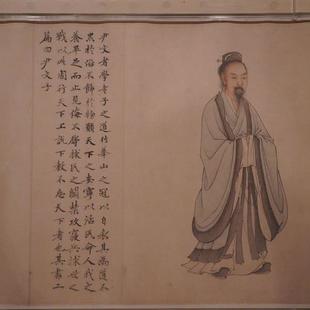 尹文者學老子之道作華山之冠以自表其為道不
累於俗不飾於物願天下之安寧以活民命人我之
養畢足而止見侮不辱救民之鬬禁攻寢兵救世之
戰以此周行天下上說下教不忘天下者也其書二
篇曰尹文子